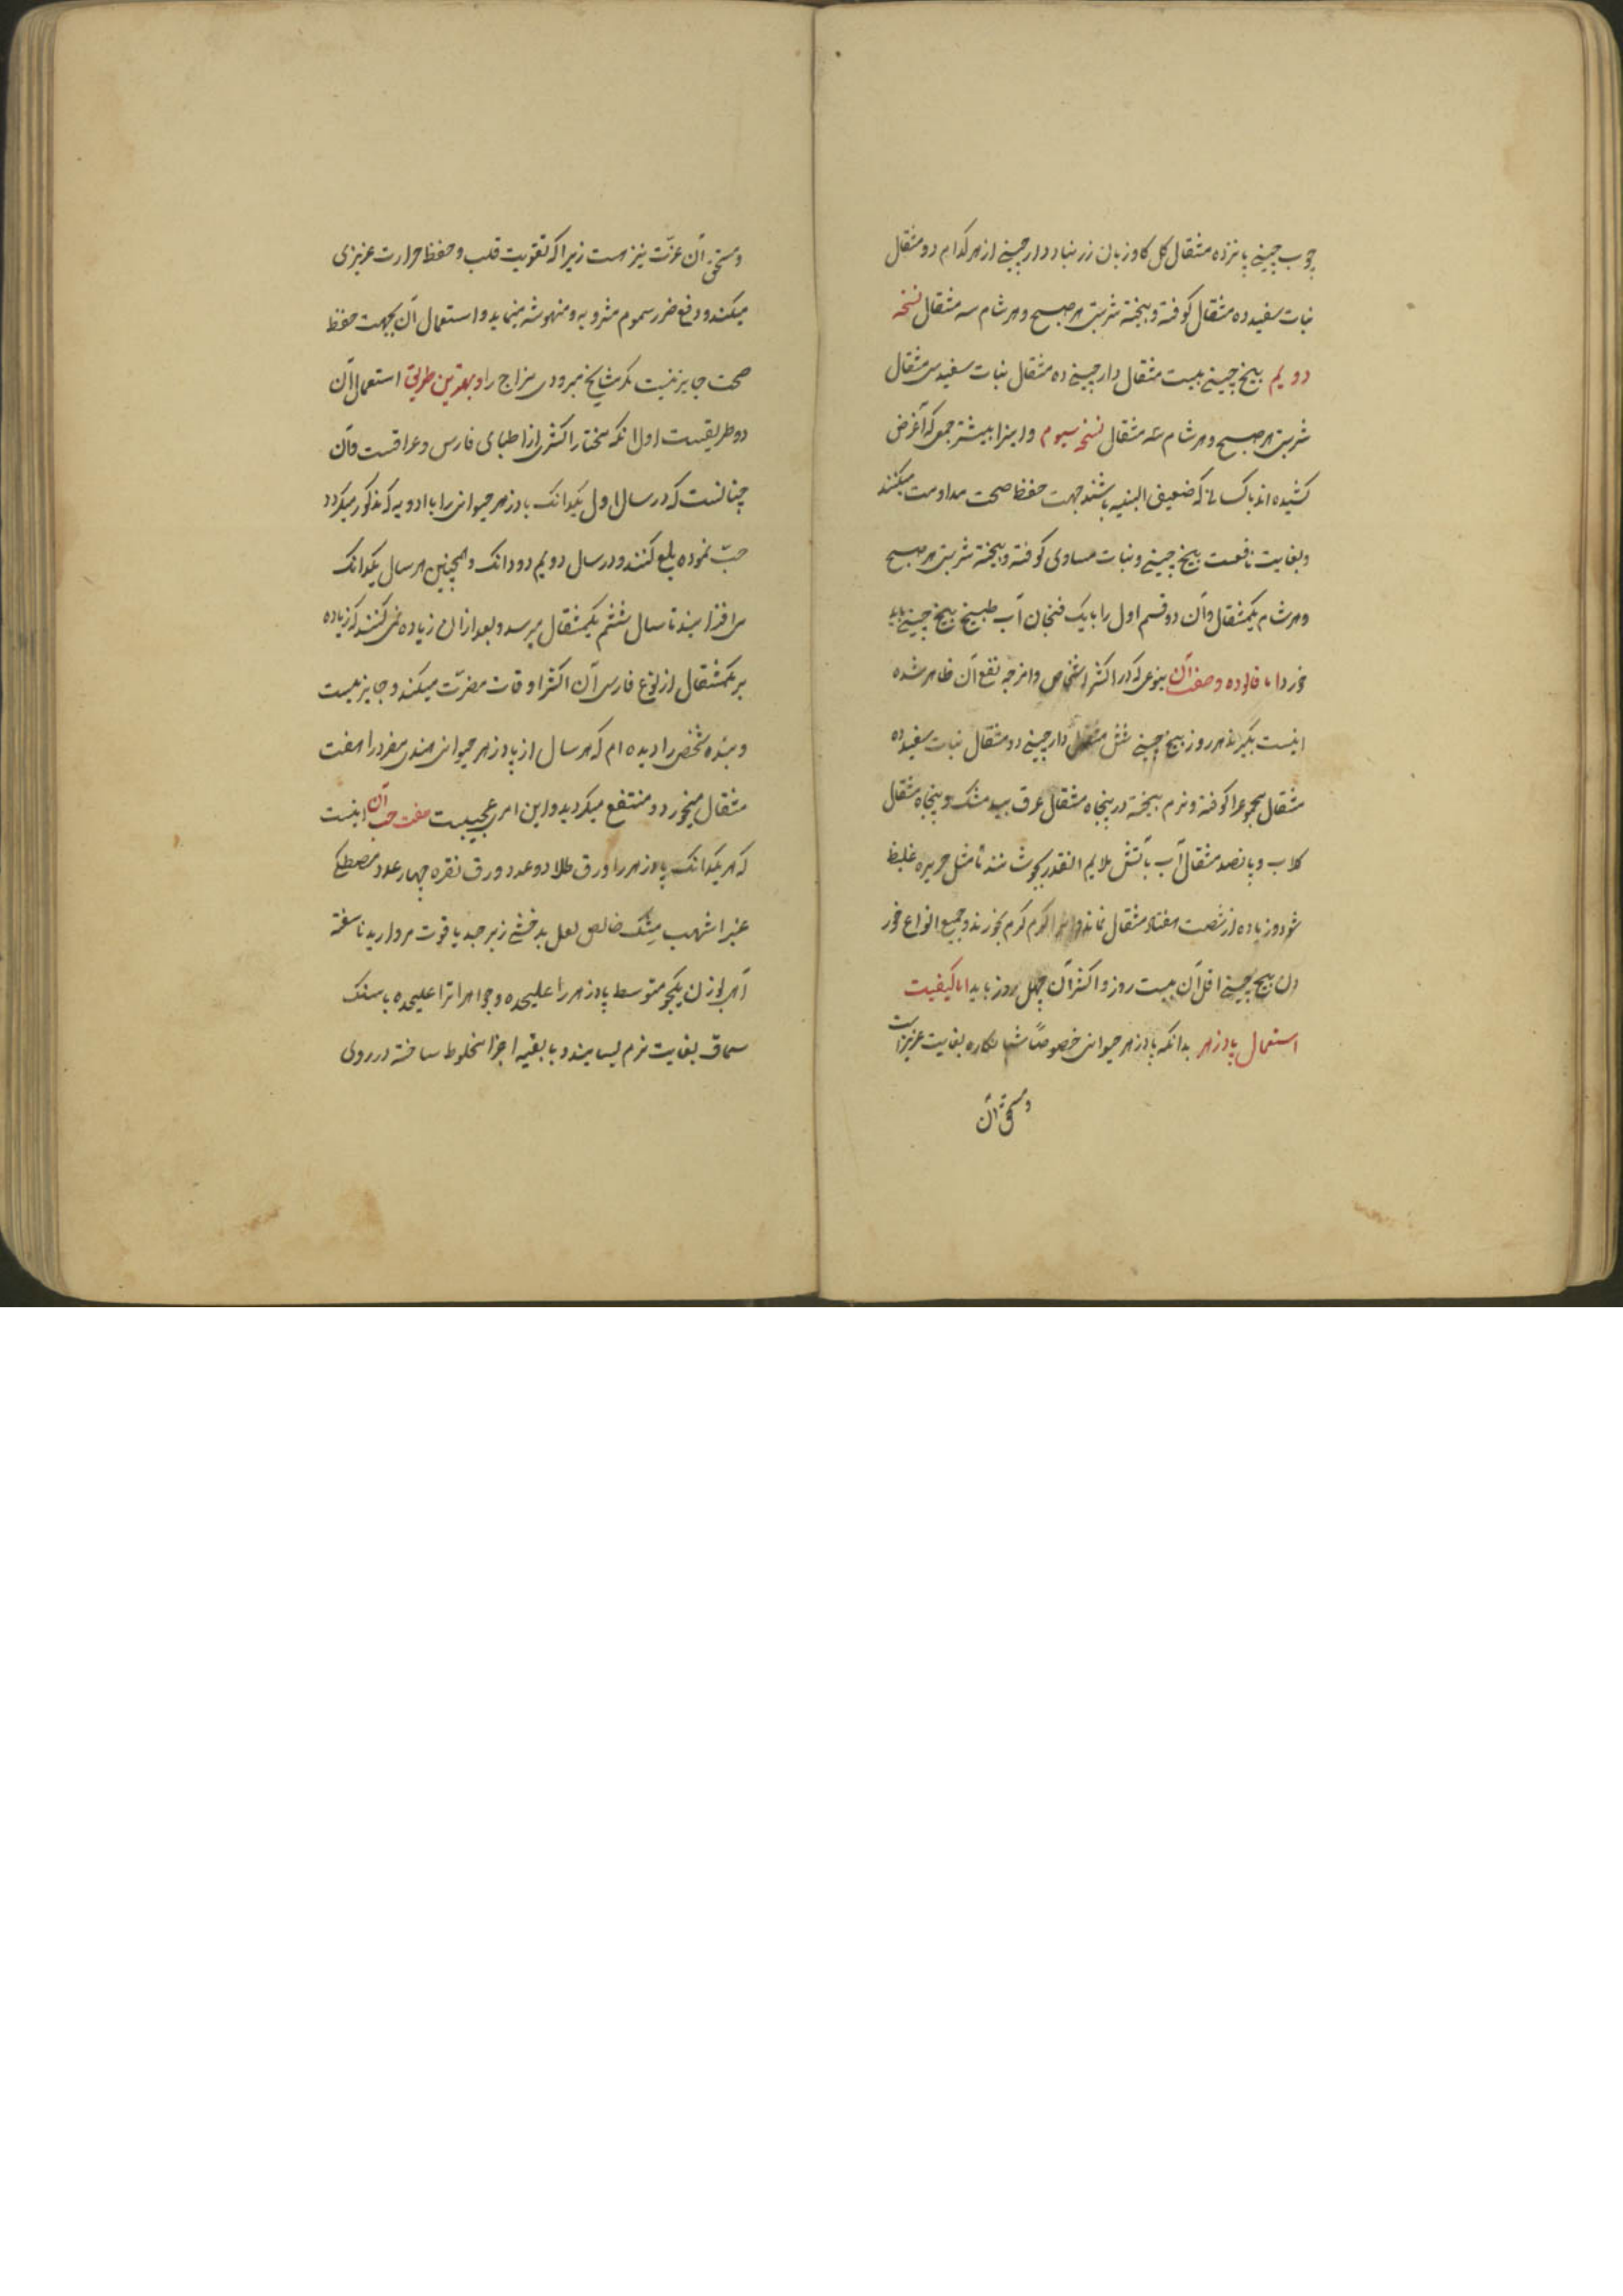 چوب چینی پانزده مثقال کل کاوزبان زرنباد دارچینی از هر کدام دو مثقال
نبات سفید ده مثقال کوفته و بیخته شربتی هر صبح و هر شام سه مثقال نسخه
دویم بیخ چینی بیست مثقال دارچینی ده مثقال نبات سفید سی مثقال
شربتی هر صبح و هر شام سه مثقال نسخه سیوم و اینرا بیشتر جمعی که آغرض
کشیده اند یا کسانی که ضعیف البنیه باشند جهت حفظ صحت مداومت میکنند
و بغایت نافعست بیخ چینی و نبات مساوی کوفته و بیخته شربتی هر صبح
و هر شام یکمثقال و آن دو قسم اول را با یک فنجان آب طبیخ بیخ چینی باید
خورد اما فالوده وصفت آن بنوعی که در اکثر اشخاص و امزجه نفع آن ظاهر شده
اینست بگیرند هر روز بیخ چینی شش مثقال دارچینی دو مثقال نبات سفید ده
مثقال مجموعرا کوفته و نرم بیخته در پنجاه مثقال عرق بید مشک و پنجاه مثقال
کلاب و پانصد مثقال آب بآتش ملایم انقدر بجوشانند تا مثل حریره غلیظ
شود و زیاده از شصت هفتاد مثقال نماند و انرا کرم کرم بخورند و جمیع انواع خور
دن بیخ چینی اقل آن بیست روز و اکثر آن چهل روز باید اما کیفیت
استعمال پادزهر بدانکه پادزهر حیوانی خصوصاً شبانکاره بغایت عزیز است
و مستحق آن
و مستحق آن عزّت نیز هست زیرا که تقویت قلب و حفظ حرارت غریزی
میکند و دفع ضرر سموم مشروبه و منهوشه مینماید و استعمال آن بجهت حفظ
صحت جایز نیست مکر مشایخ مبرودی مزاج را و بهترین طریق استعمال آن
دو طریقست اول انکه مختار اکثری از اطبای فارس و عراقست و آن
چنانست که در سال اول یکدانک پادزهر حیوانی را با ادویه که مذکور میکردد
حبّ نموده بلع کنند و در سال دویم دو دانک و همچنین هر سال یکدانک
می افزایند تا سال ششم یکمثقال میرسد و بعد ازان زیاده نمی کنند که زیاده
بر یکمثقال از نوع فارسی آن اکثر اوقات مضرّت میکند و جایز نیست
و بنده شخصی را دیده ام که هر سال از پادزهر حیوانی هندی مفرد را هفت
مثقال میخورد و منتفع میکردید و این امری عجیبست صفت حب آن اینست
که هر یکدانک پادزهر را ورق طلا دو عدد ورق نقره چهار عدد مصطکی
عنبر اشهب مشک خالص لعل بدخشی زبرجد یاقوت مروارید ناسفته
از هر یک بوزن یکجو متوسط پادزهر را علیحده و جواهر اترا علیحده با سنک
سماق بغایت نرم بسایند و با بقیه اجزا مخلوط ساخته در روی